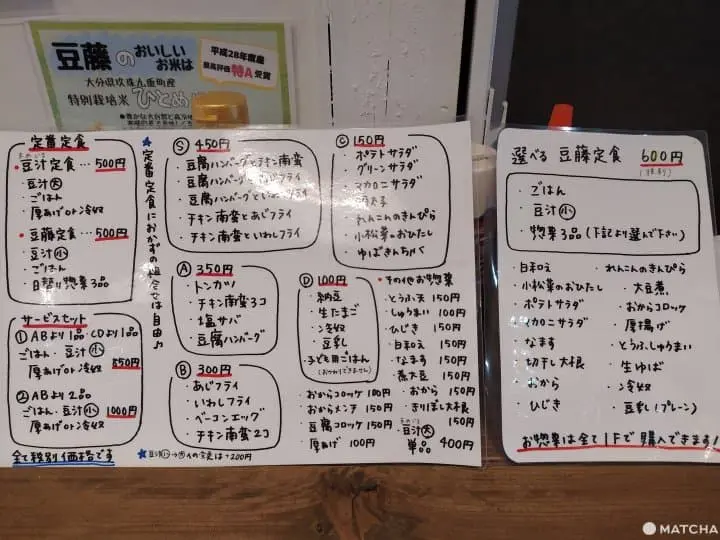 豆藤のおいしいお米は
平成28年度産
最高評価 特A 受賞
大分県玖珠九重町産
特別栽培米 ひとめ
定番定食
・豆汁定食…500円
・豆汁大
・ごはん
・厚あげor冷奴
・豆藤定食…500円
・豆汁小
・ごはん
・日替り惣菜3品
サービスセット
①ABより1品・CDより1品
ごはん・豆汁小
厚あげor冷奴 850円
②ABより2品
ごはん・豆汁小 1000円
厚あげor冷奴
全て税別価格です
★定番定食におかずの組合せは自由♪
S 450円
・豆腐ハンバーグとチキン南蛮
・豆腐ハンバーグとあじフライ
・豆腐ハンバーグといわしフライ
・チキン南蛮とあじフライ
・チキン南蛮といわしフライ
A 350円
・トンカツ
・チキン南蛮3コ
・塩サバ
・豆腐ハンバーグ
B 300円
・あじフライ
・いわしフライ
・ベーコンエッグ
・チキン南蛮2コ
★豆汁小→大への変更は+200円
C 150円
・ポテトサラダ
・グリーンサラダ
・マカロニサラダ
・明太子
・れんこんのきんぴら
・小松菜のおひたし
・ゆばきんちゃく
D 100円
・納豆
・生たまご
・冷奴
・豆乳
・子ども用ごはん
(おかわりできません)
・おからコロッケ 100円
・おからメンチ 150円
・豆腐コロッケ 150円
・厚あげ 100円
・その他お惣菜
・とうふ天 150円
・しゅうまい 100円
・ひじき 150円
・白和え 150円
・なます 150円
・煮大豆 150円
・おから 150円
・きりぼし大根 150円
・豆汁大 単品 400円
選べる 豆藤定食 600円
(税別)
・ごはん
・豆汁小
・惣菜3品(下記より選んで下さい)
・白和え
・小松菜のおひたし
・ポテトサラダ
・マカロニサラダ
・なます
・切干し大根
・おから
・ひじき
・れんこんのきんぴら
・大豆煮
・おからコロッケ
・厚揚げ
・とうふしゅうまい
・生ゆば
・冷奴
・豆乳(プレーン)
お惣菜は全て1Fで購入できます!
MATCHA